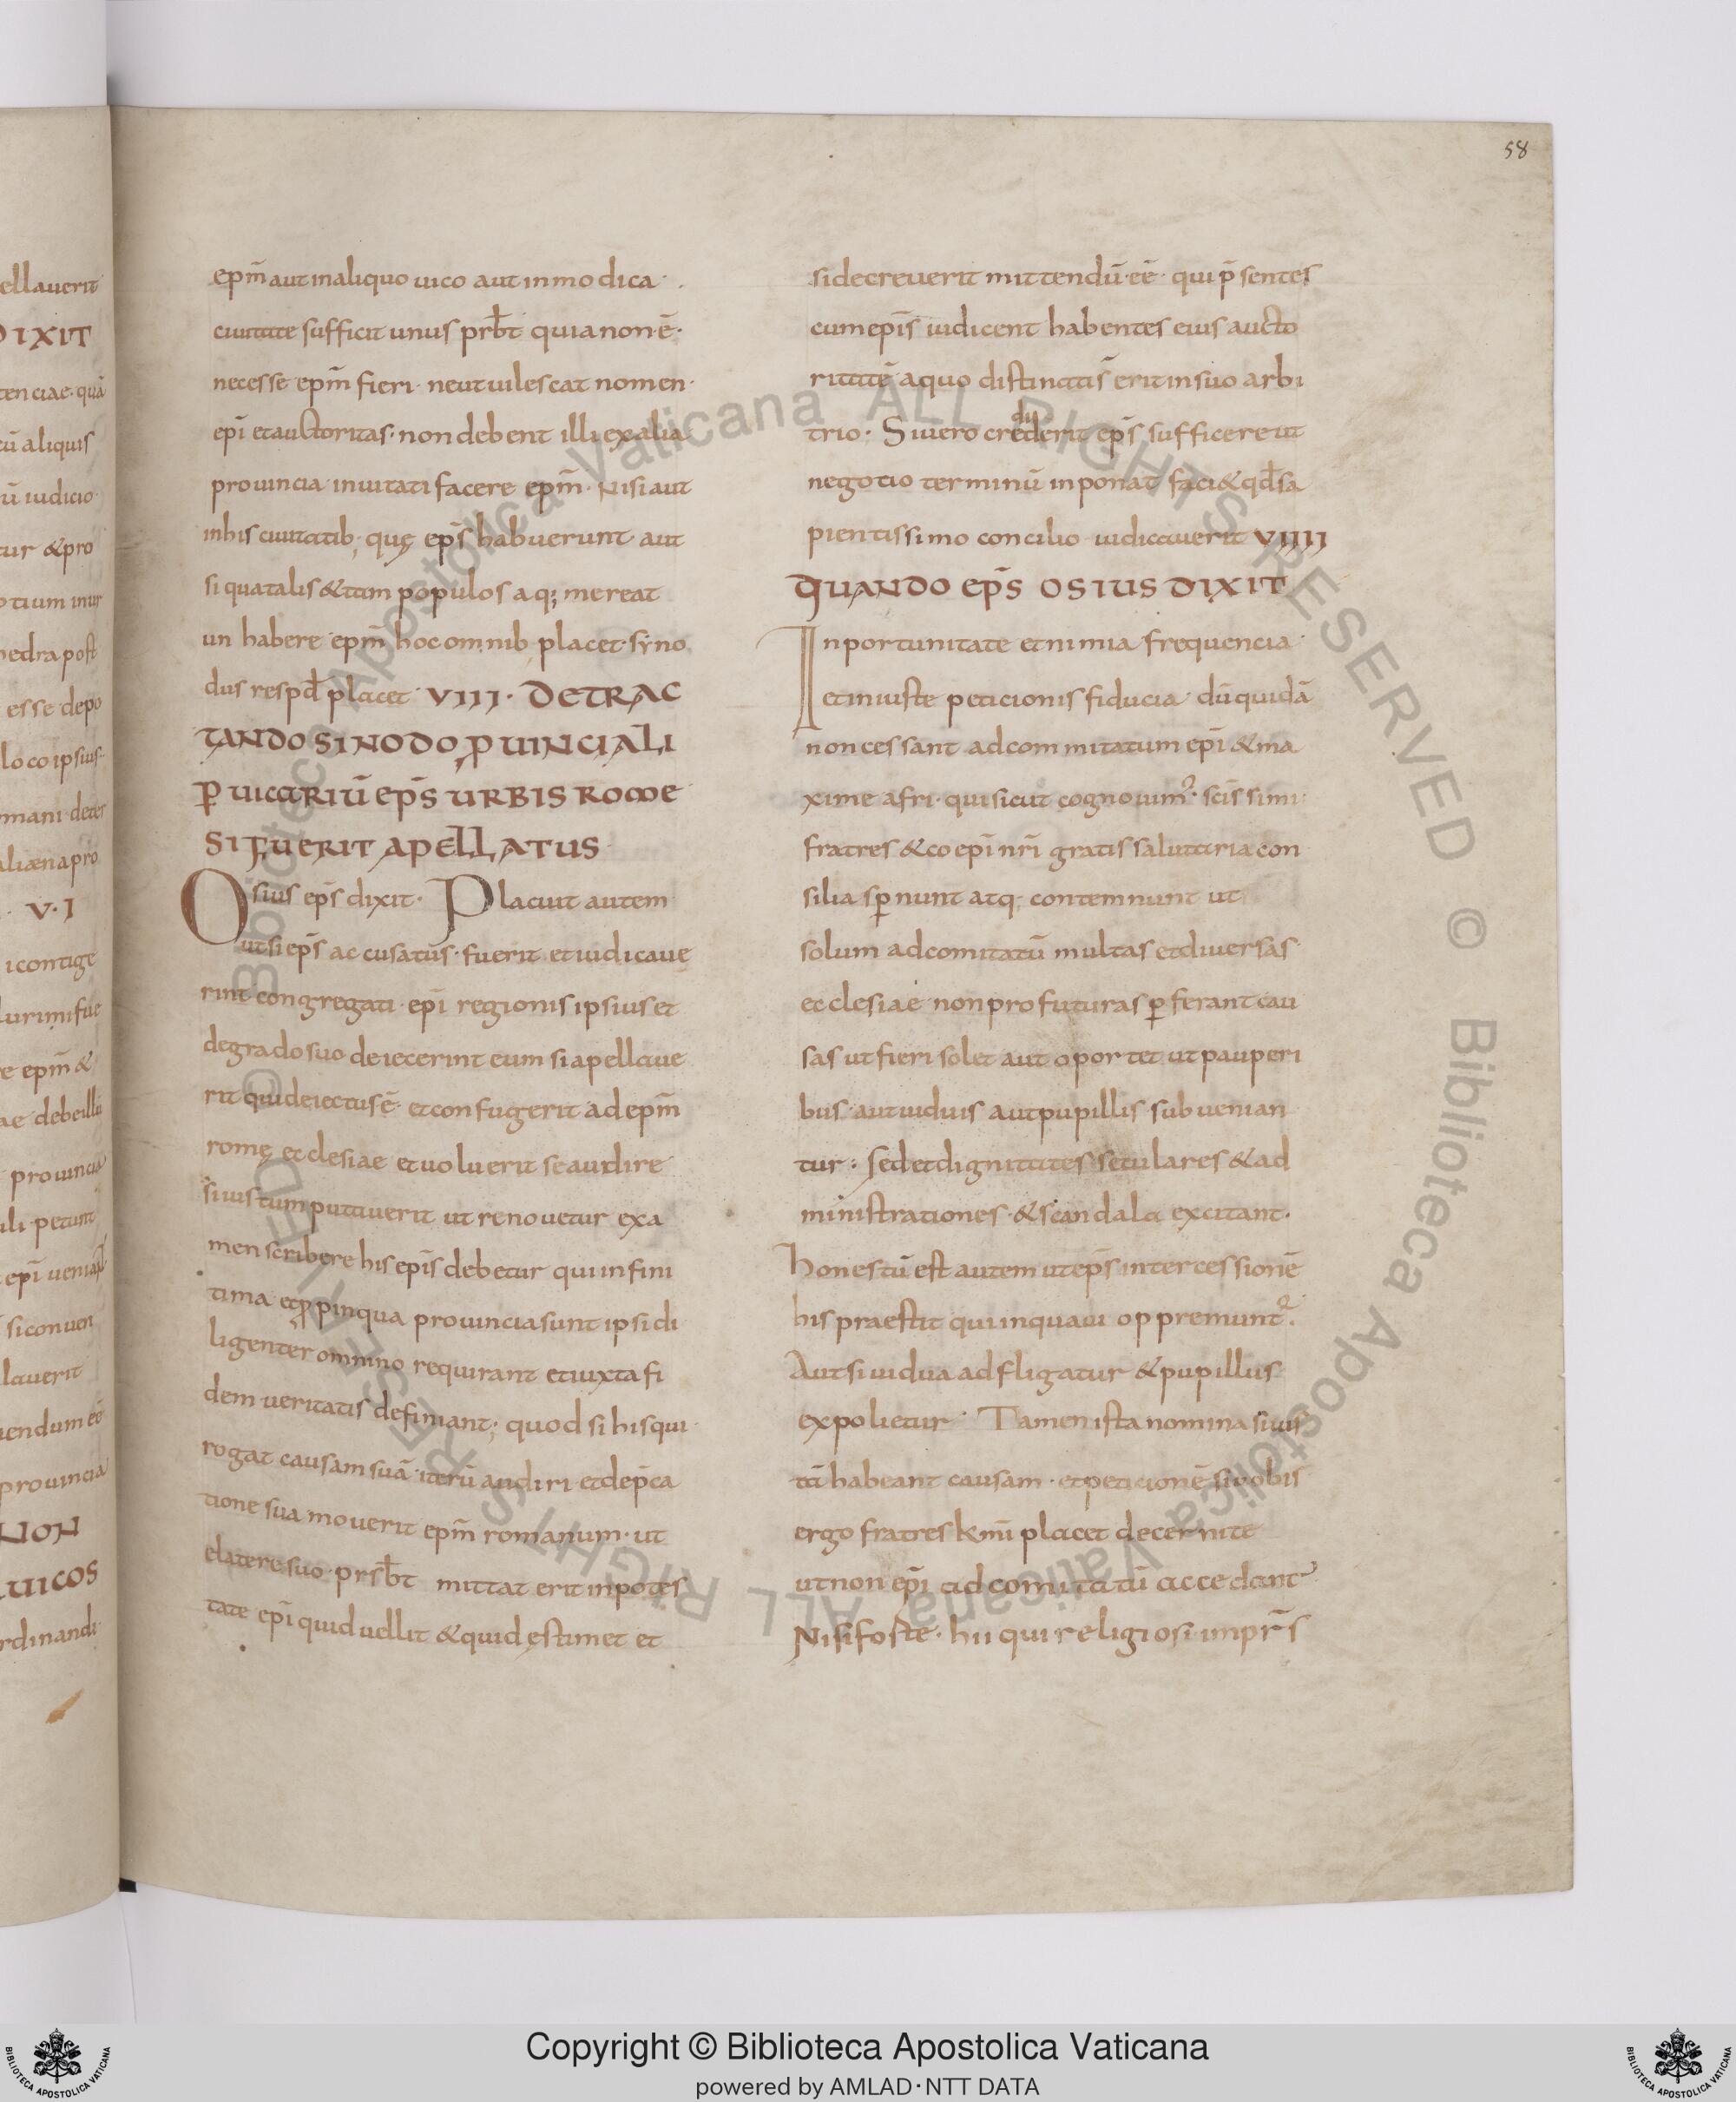 58
ellauerit
DIXIT
tenciae· quā
tū aliquis
ū iudicio
tur &pro
otium inur
hedra post
esse depo
loco ipsius·
mani decer
aliaenapro
· V·I
icontige
lurimifue
e epm̄ &
ae debeillū
prouincia
ili· petunt
epī ueniat
siconuen
lauerit
uendum eē
prouincia
NON
UICOS
rdinandi
epm̄ aut inaliquo uico aut inmodica ·
ciuitate sufficit unus prb̄t quia non ē·
necesse epm̄ fieri· neutuilescat nomen·
epī etauctoritas· non debent illi exalia
prouincia inuitati facere epm̄· Nisi aut
inhis ciuitatib; quę ep̄s habuerunt aut
si qua talis &tam populosa q; mereat
un habere epm̄ hoc omnib; placet· syno
dus resp̄d placet VIII· DETRAC
TANDO SINODO ꝓUINCIALI
ꝑ UICARIŪ EP̄S URBIS ROME
SI FUERIT APELLATUS
Osius ep̄s dixit· Placuit autem
utsi ep̄s accusatus· fuerit etiudicaue
rint congregati· epī regionis ipsius et
degrado suo deiecerint eum si apellaue
rit qui deiectus ē· et confugerit ad epm̄
romę ecclesiae etuoluerit seaudire
siiustum putauerit ut renouetur exa
men scribere his epīs debetur qui infini
tima etꝓpinqua prouincia sunt ipsi di
ligenter omnino requirant etiuxta fi
dem ueritatis definiant; quod si hisqui
rogat causam suā iterū audiri etdep̄ca
tione sua mouerit epm̄ romanum· ut
elatere suo· prsb̄t mittat erit inpotes
tate epī quid uellit &quid ęstimet et
sidecreuerit mittendū· eē· quip̄sentes
cumepīs iudicent habentes eius aucto
ritatē aquo distinatis̄ erit insuo arbi
trio· Siuero crederit ep̄s sufficere ut
di
negotio terminū inponat faci&qd̄sa
pientissimo concilio iudicauerit VIIII
QUANDO EP̄S OSIUS DIXIT
Inportunitate etnimia frequencia
etiniuste peticionis fiducia dū quidā
non cessant adcommitatum epī &ma
xime afri· quisicut cognouim᾿· scīssimi
fratres &coepī nrī gratis salutaria con
silia sꝑnunt atq; contemnunt ut
solum adcomitatū multas etdiuersas
ecclesiae non profuturas ꝑferant cau
sas ut fieri solet aut oportet ut pauperi
bus· autuiduis autpupillis subuenian
tur: sed etdignitates seculares &ad
ministrationes· &scandala excitant·
honestū est autem uteps̄ intercessionē
his praestit qui inquam oppremunt᾿.
Autsi uidua adfligatur &pupillus
expolietur· Tamen ista nomina siuis
tā habeant causam· et peticionē siuobis
ergo fratres kmī placet decernite
utnon epī adcomitatū accedant
Nisi foste· hii qui religiosi impr̄s
Copyright © Biblioteca Apostolica Vaticana
powered by AMLAD·NTT DATA
© Biblioteca Apostolica Vaticana ALL RIGHTS RESERVED © Biblioteca Apostolica Vaticana ALL RIGHTS RESERVED
BIBLIOTECA APOSTOLICA VATICANA
BIBLIOTECA APOSTOLICA VATICANA